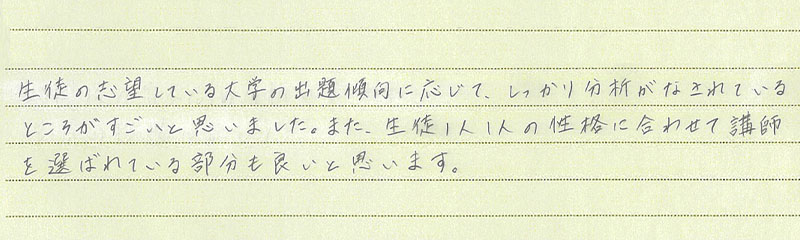 生徒の志望している大学の出題傾向に応じて、しっかり分析がなされている
ところがすごいと思いました。また、生徒1人1人の性格に合わせて講師
を選ばれている部分も良いと思います。